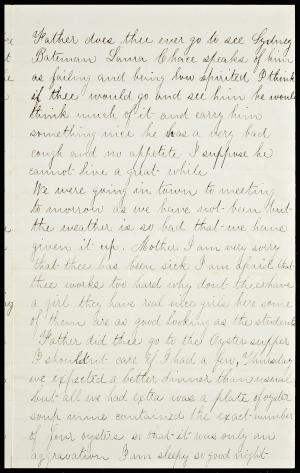 Father does thee ever go to see Sydney
Bateman Laura Chace speaks of him
as failing and being low spirited I think
if thee would go and see him he would
think much of it and carry him
something nice he has a very bad
cough and no appetite I suppose he
cannot live a great while
We were going in town to meeting
to morrow as we have not been but
the weather is so bad that we have
given it up. Mother I am very sorry
that thee has been sick I am afraid that
thee works too hard why dont thee have
a girl they have real nice girls here some
of them are as good looking as the students
Father did thee go to the Oyster supper
I shouldn't care if I had a few, Thursday
we expected a better dinner than usual
but all we had extra was a plate of oyster
soup mine contained the exact number
of four oysters so that it was only an
aggravation I am sleepy so good night